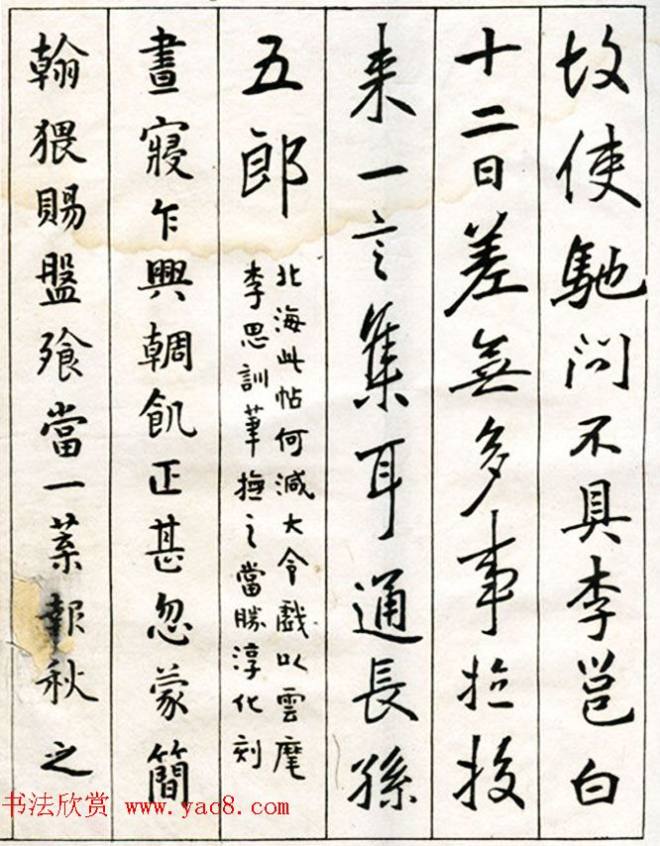 故使馳問不具李邕白
十二日差無多事撿校
来一言集耳通長孫
五郎
北海此帖何減大令戲以雲麾
李思訓筆撫之當勝淳化刻
晝寢乍興輖飢正甚忽蒙簡
翰猥賜盤飧當一葉報秋之
书法欣赏 www.yac8.com